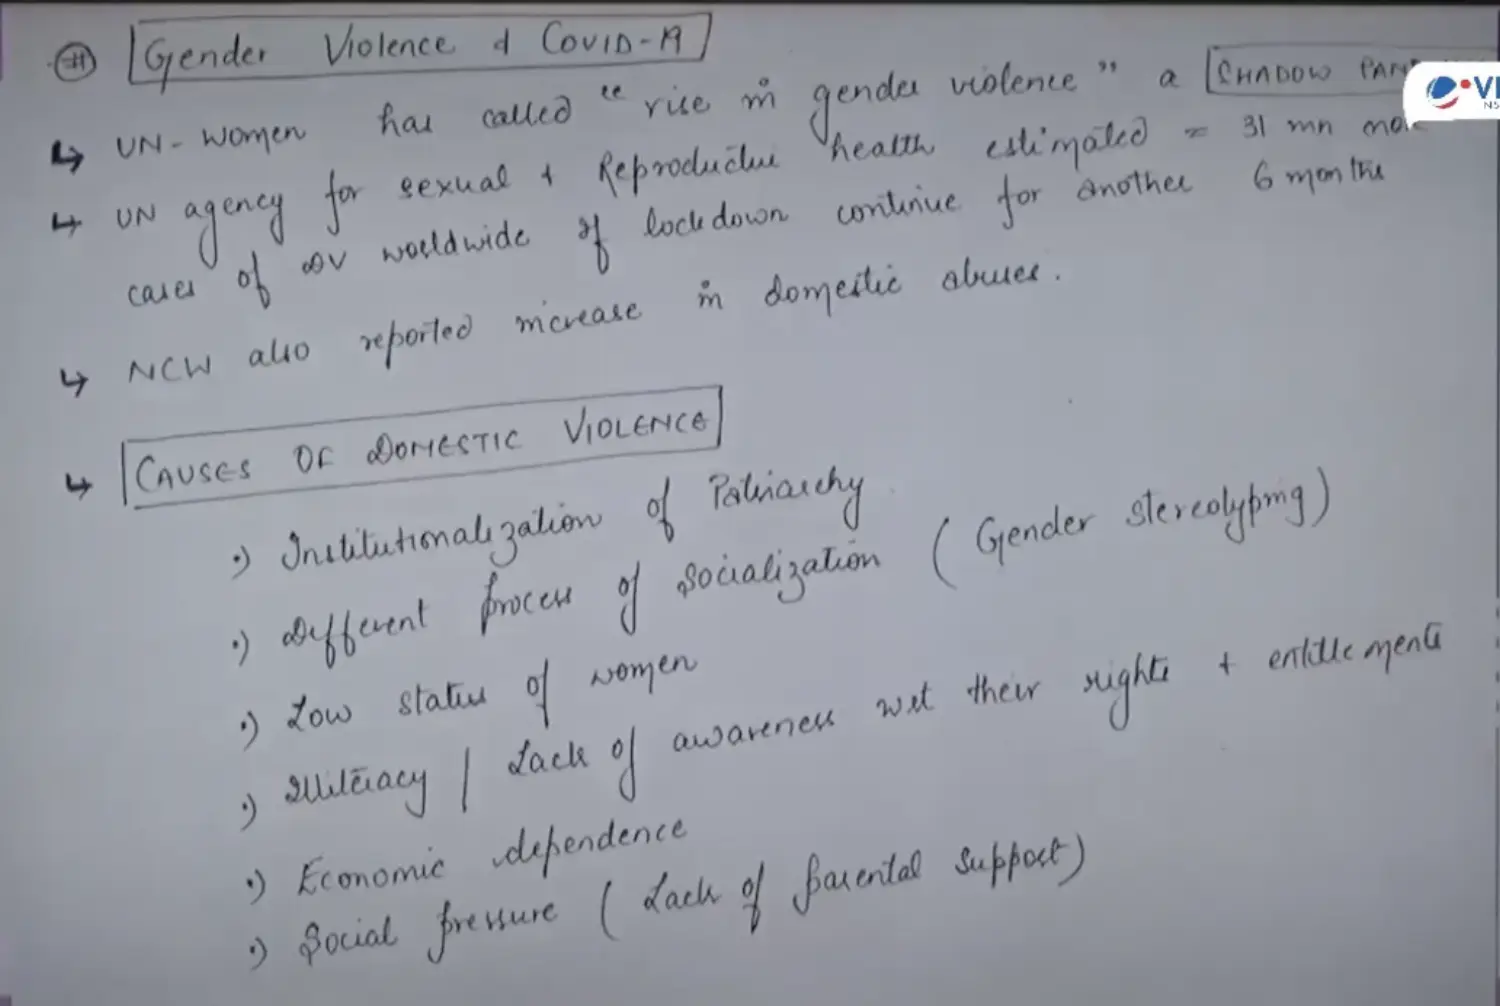 # Gender Violence & COVID-19
↳ UN-Women has called "rise in gender violence" a SHADOW PAN
↳ UN agency for sexual & Reproductive health estimated = 31 mn more
cases of DV worldwide if lockdown continue for another 6 months
↳ NCW also reported increase in domestic abuses.
↳ CAUSES OF DOMESTIC VIOLENCE
•) Institutionalization of Patriarchy
•) Different process of socialization (Gender stereotyping)
•) Low status of women
•) Illiteracy / Lack of awareness wrt their rights + entitlements
•) Economic dependence
•) Social pressure (Lack of parental support)
VI
NS